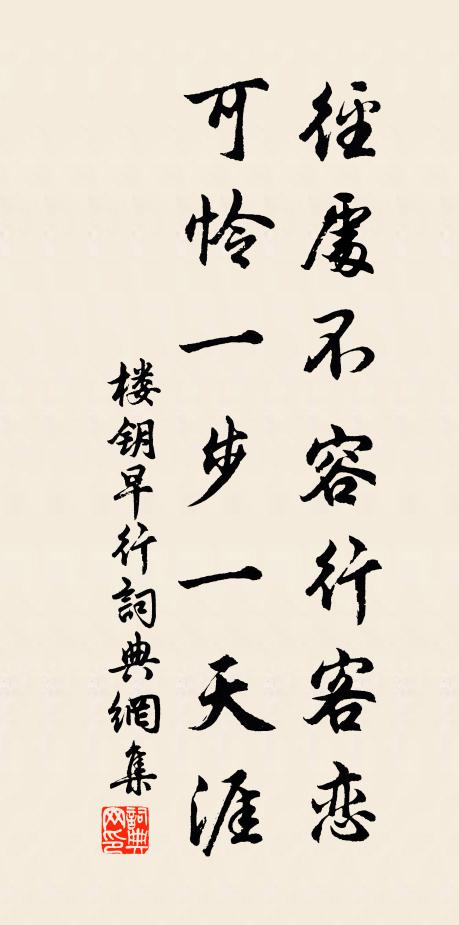 徑處不容行客恋
可怜一步一天涯
楼钥早行詞典網集
詞典网印